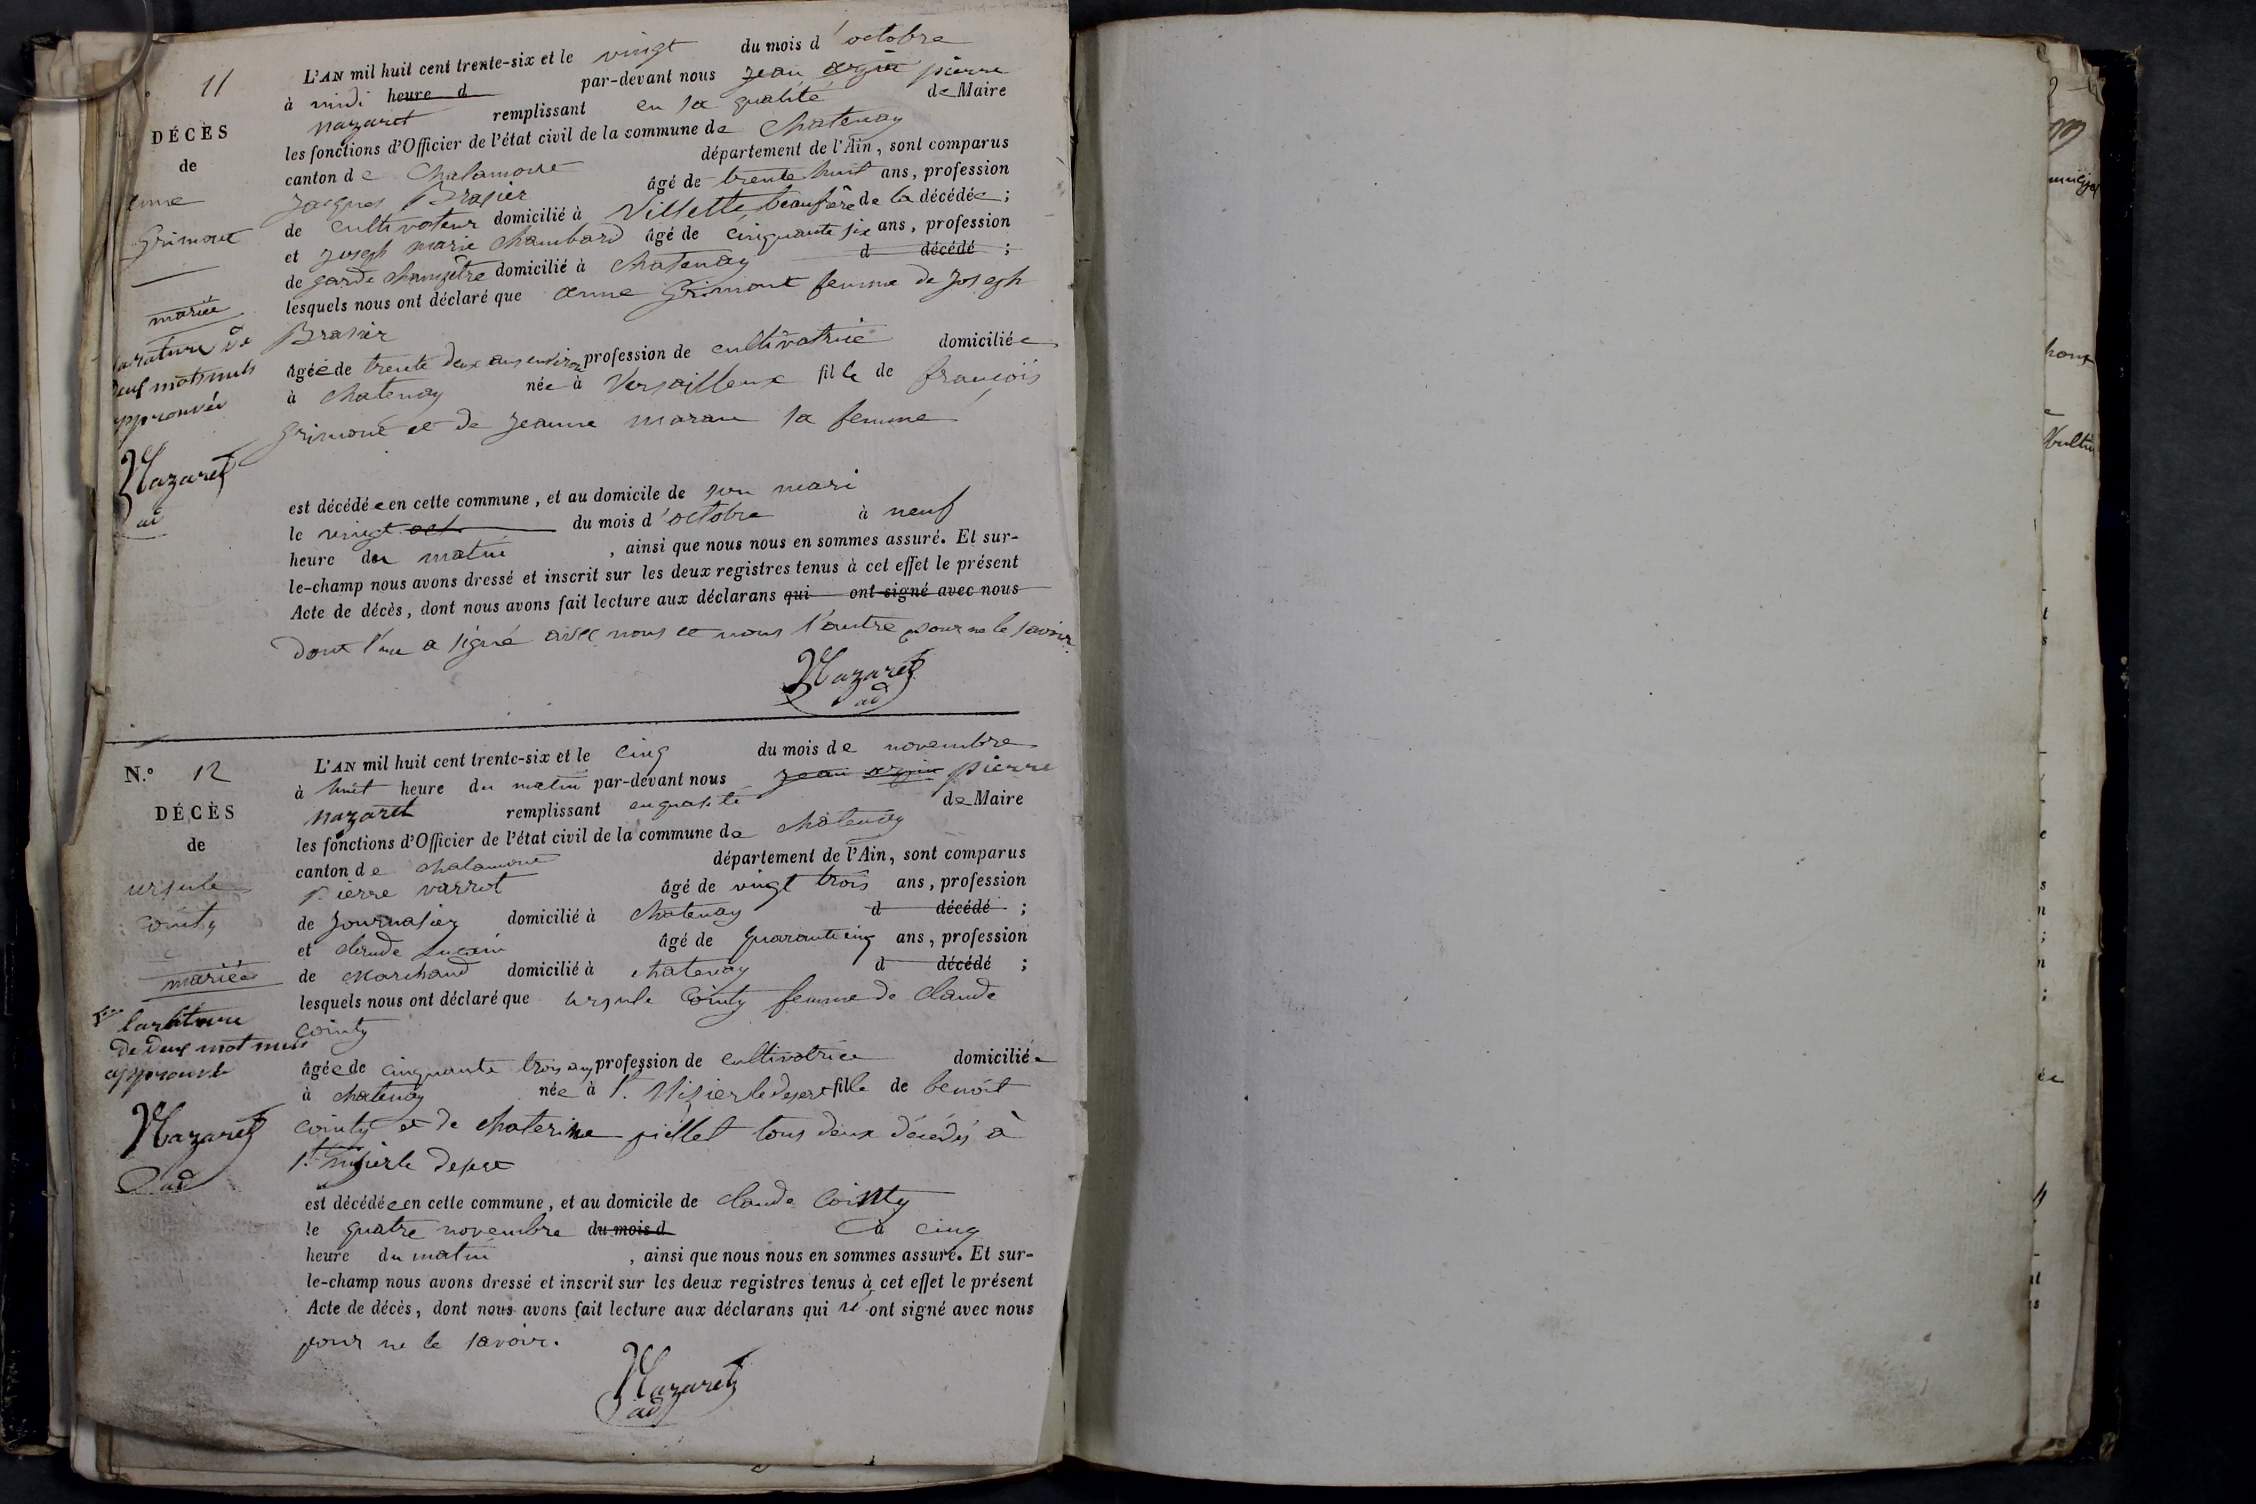 11
DÉCÈS
de
anne
Grimout
mariée
la rature de
deux mots nuls
approuvée
Nazaret
ad
L'AN mil huit cent trente-six et le vingt du mois d'octobre
à midi heure d par-devant nous jean pierre
nazaret remplissant en sa qualité de Maire
les fonctions d'Officier de l'état civil de la commune de Chatenay
canton de Chalamont département de l'Ain, sont comparus
jacques Brasier âgé de trente huit ans, profession
de cultivateur domicilié à Villette, beaufrère de la décédée;
et joseph marie chambard âgé de cinquante six ans, profession
de garde champêtre domicilié à chatenay d décédé ;
lesquels nous ont déclaré que anne Grimout femme de joseph
Brasier
âgée de trente deux ans environ profession de cultivatrice domiciliée
à chatenay née à Versailleux fille de françois
grimout et de jeanne maran sa femme
est décédée en cette commune, et au domicile de son mari
le vingt oct du mois d'octobre à neuf
heure du matin , ainsi que nous nous en sommes assuré. Et sur-
le-champ nous avons dressé et inscrit sur les deux registres tenus à cet effet le présent
Acte de décès, dont nous avons fait lecture aux déclarans qui ont signé avec nous
dont l'un a signé avec nous et nous l'autre pour ne le savoir
Nazaret
ad
N.° 12
DÉCÈS
de
ursule
Cointy
mariée
la rature
de deux mot nuls
approuvé
Nazaret
ad
L'AN mil huit cent trente-six et le cinq du mois de novembre
à huit heure du matin par-devant nous jean pierre
nazaret remplissant en qualité de Maire
les fonctions d'Officier de l'état civil de la commune de chatenay
canton de chalamont département de l'Ain, sont comparus
Pierre varrot âgé de vingt trois ans, profession
de journalier domicilié à chatenay d décédé ;
et claude Lucain âgé de quarante cinq ans, profession
de marchand domicilié à chatenay d décédé ;
lesquels nous ont déclaré que ursule Cointy femme de claude
cointy
âgée de cinquante trois ans profession de cultivatrice domiciliée
à chatenay née à St. Nizier le desert fille de benoit
cointy et de chaterine piellet tous deux décédés à
St. nizier le desert
est décédée en cette commune, et au domicile de claude Cointy
le quatre novembre du mois d à cinq
heure du matin , ainsi que nous nous en sommes assuré. Et sur-
le-champ nous avons dressé et inscrit sur les deux registres tenus à cet effet le présent
Acte de décès, dont nous avons fait lecture aux déclarans qui n'ont signé avec nous
pour ne le savoir.
Nazaret
ad